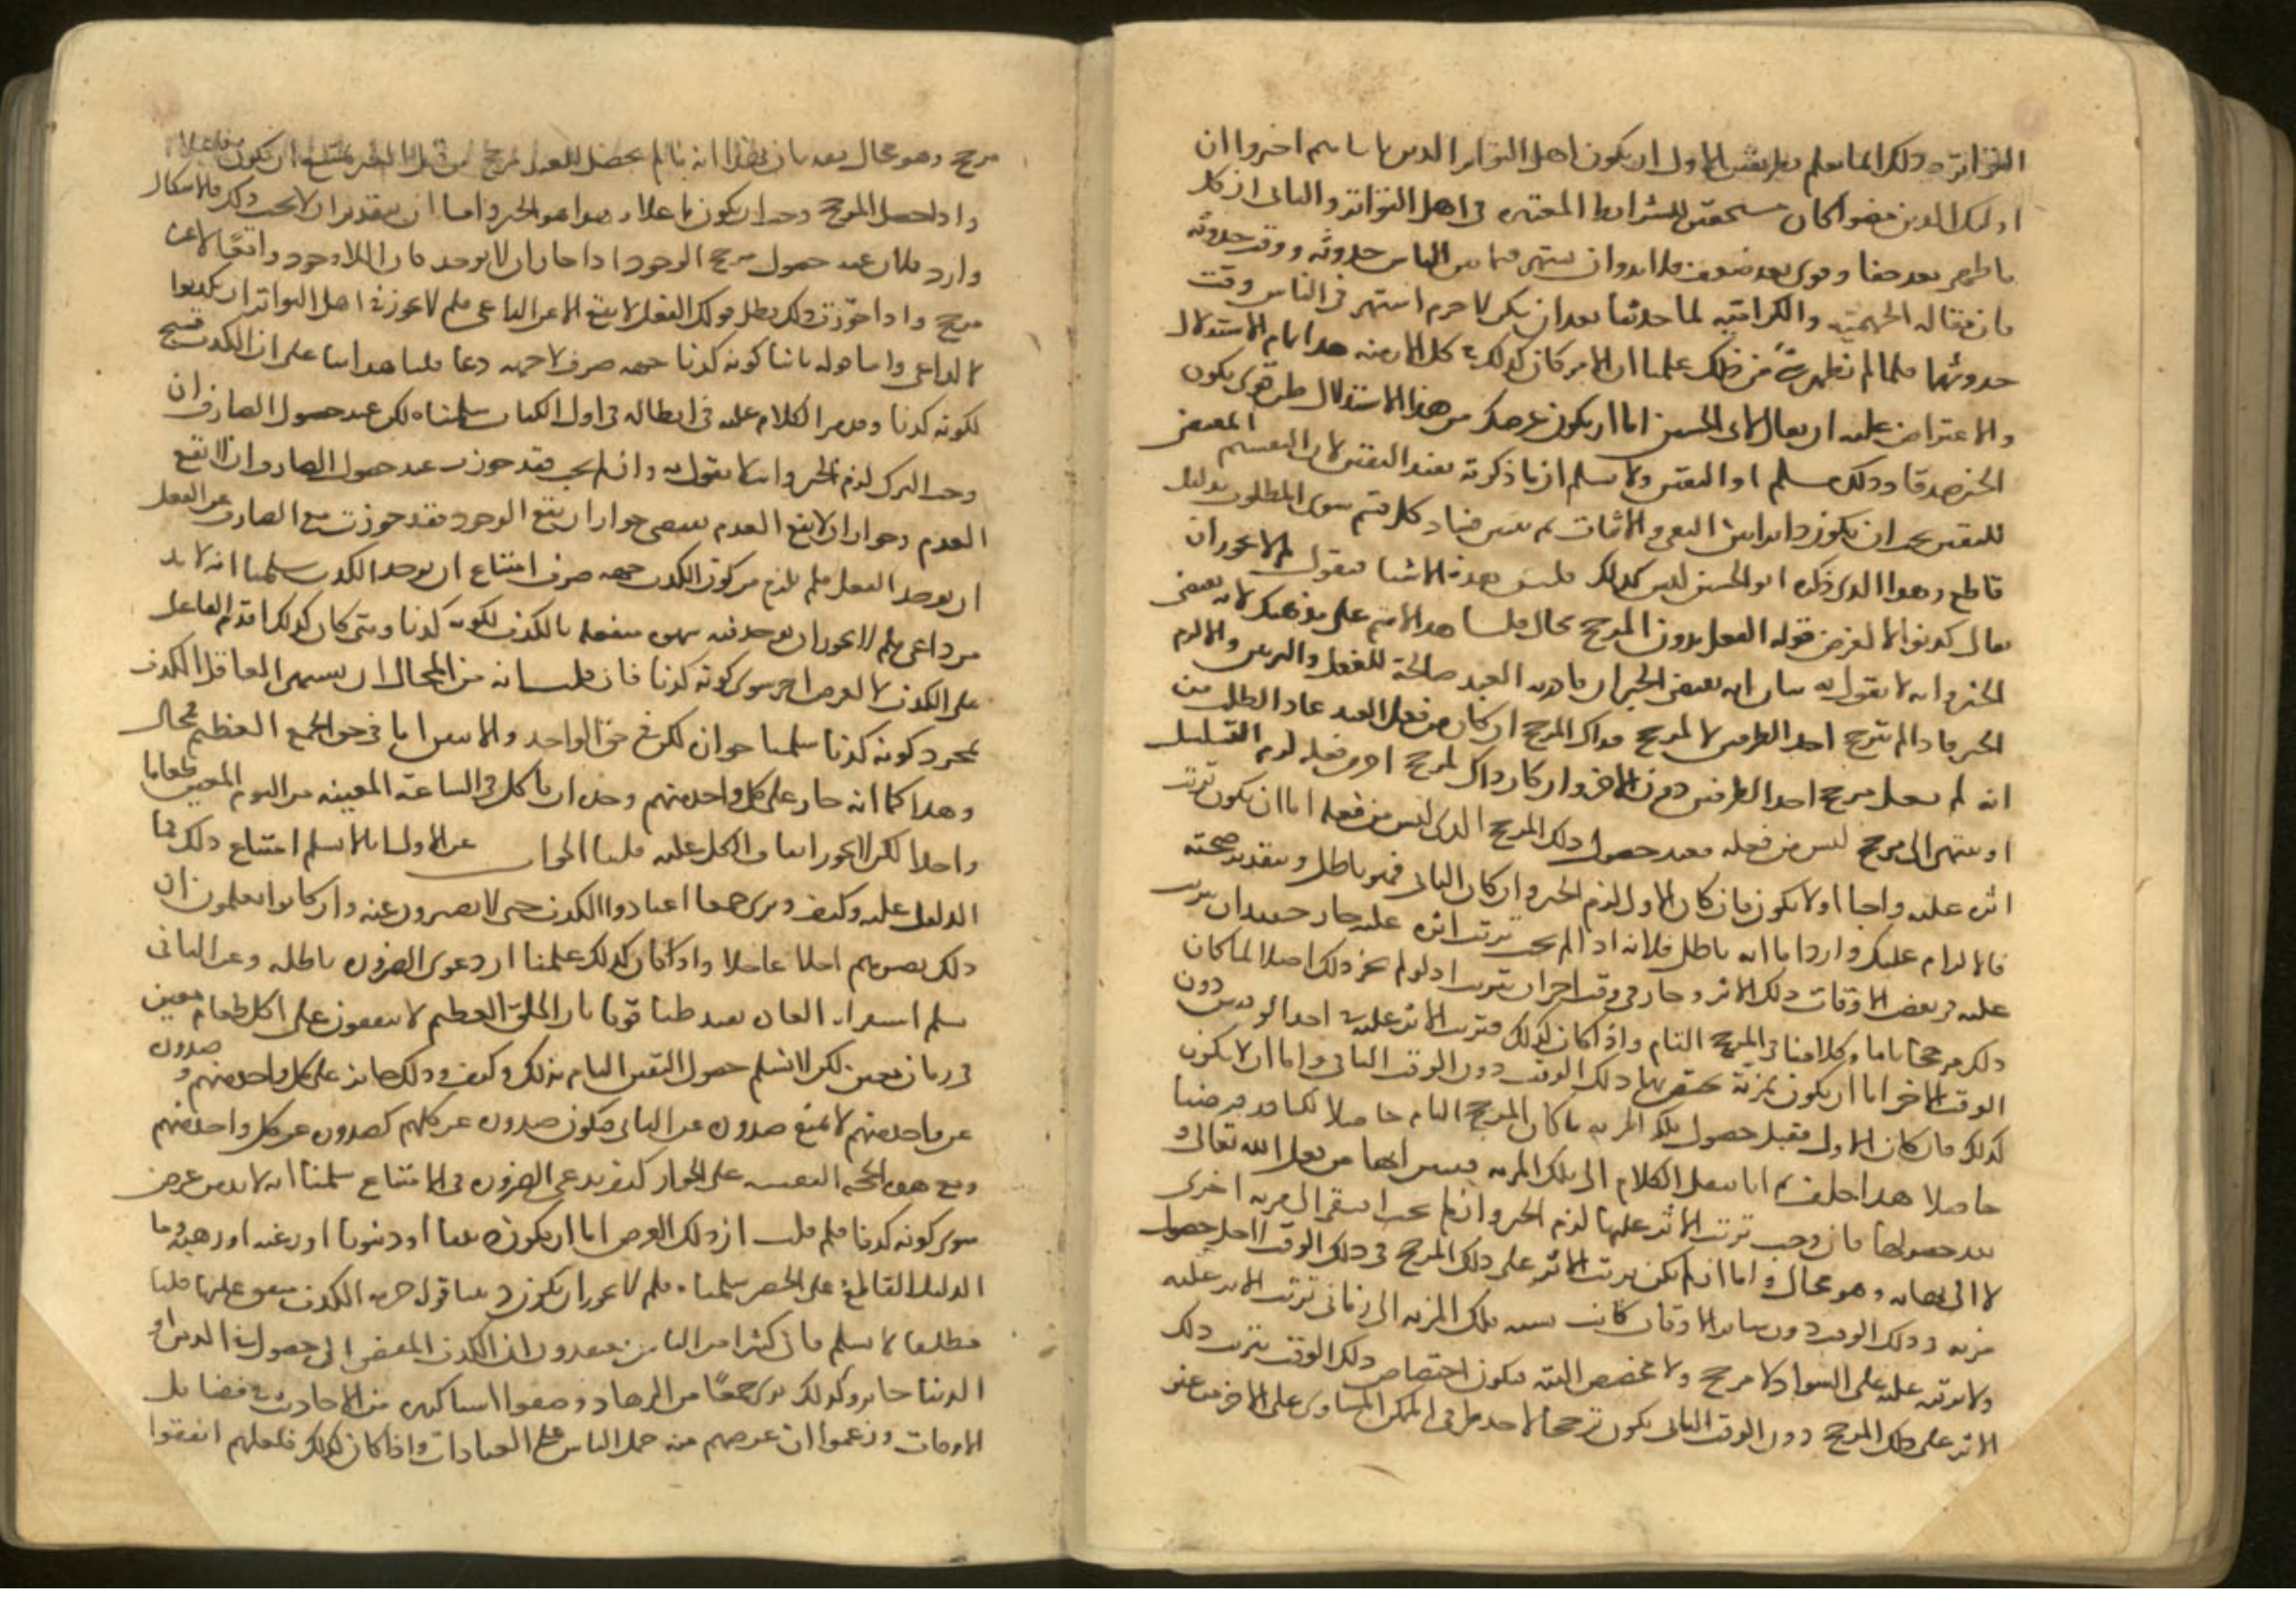 التواتر وذلك انما يعلم بطريقين الاول ان يكون اهل التواتر الذين باسرهم اخبروا ان
اولئك الذين مضوا كان مستجمعين للشرايط المعتبره فى اهل التواتر والثانى ان كل
ما ظهر بعد خفا وقوى بعد ضعف فلا بد وان يشتهر فيما بين الناس حدوثه ووقت حدوثه
فان مقاله الجهميه والكراميه لما حدثتا بعد ان لم يكن لا جرم اشتهر فى الناس وقت
حدوثهما فلما لم يظهر شى من ذلك علمنا ان الامر كان كذلك فى كل الازمنه هذا تمام الاستدلال
والاعتراض عليه ان يقال لابى الحسين اما ان يكون غرضك من هذا الاستدلال ظن قوى بكون
الخبر صدقا وذلك مسلم او اليقين ولا نسلم ان ما ذكرته يفيد اليقين لان التقسيم المفضى
لليقين يجب ان يكون دايرا بين النفى والاثبات ثم نبين فساد كل قسم سوى المطلوب بدليل
قاطع وهذا الذى ذكره ابو الحسين ليس كذلك فلنبين هذه الاشيا فنقول لم لا يجوز ان
يقال كذبوا لا لغرض قوله الفعل بدون المرجح محال قلنا هذا لا يتم على مذهبك لانه يقتضى
الجبر وانت لا تقول به بيان انه يقتضى الجبر ان قادريه العبد صالحة للفعل والترك والا لزم
الجبر فما دام لم يترجح احد الطرفين لا لمرجح فذاك المرجح ان كان من فعل العبد عاد الطلب من
انه لم فعل مرجح احد الطرفين دون الاخر وان كان ذاك لمرجح اخر من فعله لزم التسلسل
او ينتهى الى مرجح ليس من فعله فعند حصول ذلك المرجح الذى ليس من فعله اما ان يكون ترتب
اثره عليه واجبا او لا يكون فان كان الاول لزم الجبر وان كان الثانى فهو باطل وبتقدير صحته
فالالزام عليك وارد اما انه باطل فلانه اذا لم يجب ترتب اثره عليه جاز حينئذ ان يترتب
عليه فى بعض الاوقات ذلك الاثر وجاز فى وقت اخر ان لا يترتب اذ لو لم يجز ذلك اصلا لما كان
ذلك مرجحا تاما وكلامنا فى المرجح التام واذا كان كذلك فترتب الاثر عليه فى احد الوقتين دون
الوقت الاخر اما ان يكون لمزية يختص بها ذلك الوقت دون الوقت الثانى واما ان لا يكون
كذلك فان كان الاول فقبل حصول تلك المزيه ما كان المرجح التام حاصلا لكنا قد فرضنا
حاصلا هذا خلف ثم انا ننقل الكلام الى تلك المزيه
بعد حصولها فان وجب ترتب الاثر عليها لزم الجبر وان لم يجب افتقر الى مزيه اخرى
لا الى نهايه وهو محال واما ان لم يكن ترتب الاثر على ذلك المرجح فى ذلك الوقت لاجل حصول
مزيه فى ذلك الوقت دون ساير الاوقات كانت نسبه تلك المزيه الى زمانى ترتب الاثر عليه
ولا ترتبه عليه على السوا ولا مرجح ولا مخصص البته فيكون اختصاص ذلك الوقت بترتب ذلك
الاثر على ذلك المرجح دون الوقت الثانى يكون ترجيحا لاحد طرفى الممكن المساوى على الاخر من غير
مرجح وهو محال بعد بان بهذا انه ما لم يحصل للعبد مرجح من قبل الغير يمتنع ان يكون فاعلا
واذا حصل المرجح وجب ان يكون فاعلا وهذا هو الجبر واما ان بتقدير ان لا يجب ذلك فالاشكال
وارد فلان عند حصول مرجح الوجود اذا جاز ان لا يوجد كان اللاوجود واقعا لا عن
مرجح واذا جوزت ذلك بطل قولك الفعل لا يقع الا عن الداعى فلم لا يجوز فى اهل التواتر ان يكذبوا
لا لداعى واما قوله ثانيا كونه كذبا جهه صرف لا جهه دعا قلنا هذا بنا على ان الكذب قبيح
لكونه كذبا وقد مر الكلام عليه فى ابطاله فى اول الكتاب سلمناه لكن عند حصول الصارف ان
وجب الترك لزم الجبر وانت لا تقول به وان لم يجب فقد جوزت عند حصول الصارف ان لا يقع
العدم وجواز ان لا يقع العدم يقتضى جواز ان يقع الوجود فقد جوزت مع الصارف عن الفعل
ان يوجد الفعل فلم يلزم من كون الكذب جهه صرف امتناع ان يوجد الكذب سلمنا انه لا بد
من داعى فلم لا يجوز ان يوجد فيه شهوه متعلقه بالكذب لكونه كذبا ومتى كان كذلك اقدم الفاعل
على الكذب لا لغرض اخر سوى كونه كذبا فان قلت انه من المحال ان يشتهى العاقل الكذب
لمجرد كونه كذبا سلمنا جوازه لكن فى حق الواحد والاثنين اما فى حق الجمع العظيم فمحال
وهذا كما انه جاز على كل واحد منهم وحده ان ياكل فى الساعة المعينه من اليوم المعين طعاما
واحدا لكن لا يجوز اتفاق الكل عليه قلنا الجواب عن الاول انا لا نسلم امتناع ذلك فما
الدليل عليه وكيف ونرى جمعا اعتادوا الكذب حتى لا يصبرون عنه وان كانوا يعلمون ان
ذلك يضرهم اجلا عاجلا واذا كان كذلك علمنا ان دعوى الضروره باطله وعن الثانى
نسلم استقرا العاده يفيد ظنا قويا بان الخلق العظيم لا يتفقون على اكل طعام معين
فى زمان معين لكن لا نسلم حصول اليقين التام بذلك وكيف وذلك جايز على كل واحد منهم وصدوره
عن واحد منهم لا يمنع صدوره عن الثانى فيكون صدوره عن كلهم كصدوره عن كل واحد منهم
ومع هذه الحجه اليقينيه على الجواز كيف يدعى الضروره فى الامتناع سلمنا انه لا بد من غرض
سوى كونه كذبا فلم قلت ان ذلك الغرض اما ان يكون دينيا او دنيويا او رغبه او رهبه وما
الدليل القاطع على الحصر سلمنا فلم لا يجوز ان يكون دينيا قوله حرمه الكذب متفق عليها قلنا
مطلقا لا نسلم فان كثيرا من الناس يعتقدون ان الكذب المفضى الى حصول مصلحه فى الدين او
الدنيا جايز وكذلك نرى جمعا من الزهاد وضعوا اشيا كثيره من الاحاديث فى فضايل
الاوقات وزعموا ان غرضهم منه حمل الناس على العبادات واذا كان كذلك فلعلهم اتفقوا